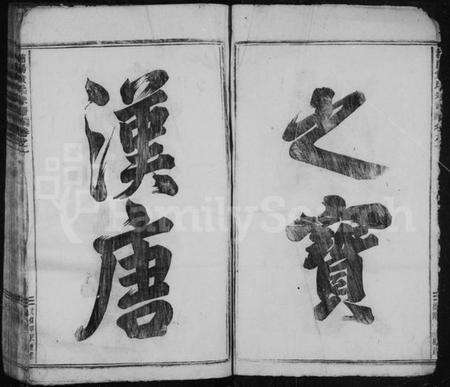 之寶
漢唐
FamilySearch